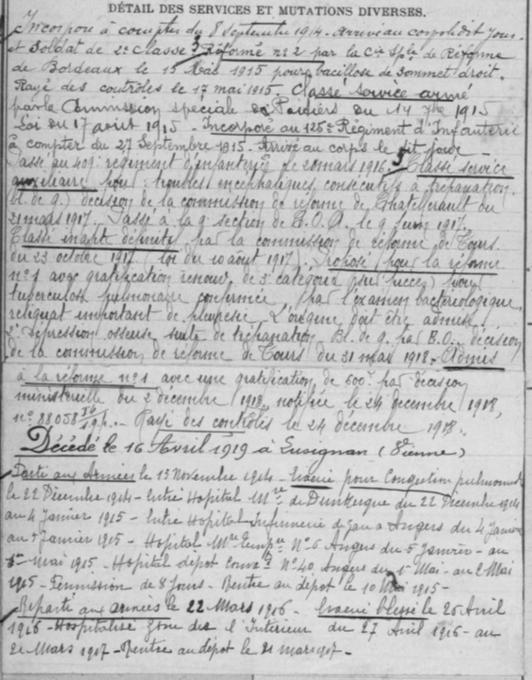 DÉTAIL DES SERVICES ET MUTATIONS DIVERSES.
Incorporé à compter du 8 septembre 1914. Arrivé au corps le dit jour
et soldat de 2e classe. Réformé no 2 par la Cion Sple de Réforme
de Bordeaux le 15 Mai 1915 pour bacillose de sommet droit.
Rayé des contrôles le 17 mai 1915. Classé service armé
par la Commission spéciale de Poitiers du 14 7bre 1915
Loi du 17 août 1915. Incorporé au 125e Régiment d'Infanterie
à compter du 27 Septembre 1915. Arrivé au corps le dit jour.
Passé au 409e régiment d'infanterie le 20 mars 1916. Classé service
auxiliaire pour troubles encéphaliques consécutifs à trépanation
bl. de g.) décision de la commission de réforme de Chatellerault du
21 mars 1917. Passé à la 9e section de C.O.A. le 9 Juin 1917.
Classé inapte définitif par la commission de réforme de Tours
du 23 octobre 1917 (loi du 10 août 1917). Proposé pour la réforme
no 1 avec gratification renouv. de 5e catégorie (sur pièces) pour
tuberculose pulmonaire confirmée, par l'examen bactériologique,
reliquat important de pleurésie. L'origine doit être admise.
2o Dépression osseuse suite de trépanation. Bl. de g. par B.O. décision
de la commission de réforme de Tours du 31 mai 1918. Admis
à la réforme no 1 avec une gratification de 600f par décision
ministérielle du 2 décembre 1918, notifiée le 24 décembre 1918,
no 88058 Rayé des contrôles le 24 décembre 1918.
Décédé le 16 Avril 1919 à Lusignan (Vienne)
Parti aux Armées le 13 Novembre 1914 - Evacué pour Congestion pulmonaire
le 22 Décembre 1914 - Entré Hopital Mre de Dunkerque du 22 Décembre 1914
au 4 Janvier 1915 - Entré Hopital Infirmerie de gare Angers du 4 Janvier
au 5 Janvier 1915 - Hopital Mre Tempre No 6 Angers du 5 Janvier - au
1er Mai 1915. - Hopital dépot Convt No 40 Angers du 1er Mai - au 2 Mai
1915 - Permission de 8 Jours - Rentré au dépot le 10 Mai 1915 -
Reparti aux armées le 22 Mars 1916 - Evacué blessé le 26 Avril
1916 - Hospitalisé Zone de l'Intérieur du 27 Avril 1916 - au
21 Mars 1917 - Rentré au dépot le 21 mars 1917 -